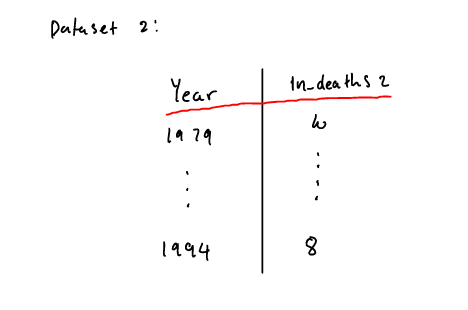 Dataset 2:
Year In_deaths 2
1979
⋮ ⋮
1994 8